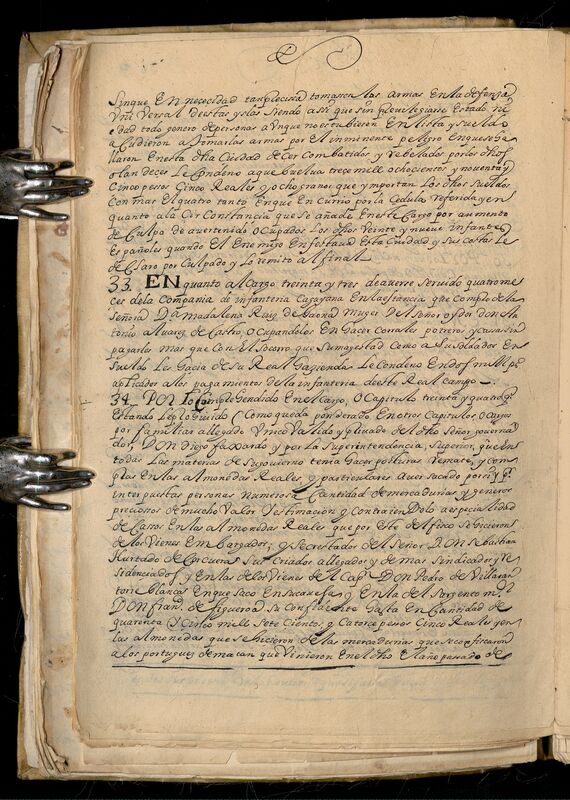 sinque En nececidad tan precissa tomassen las armas En la defenza
Vniversal destas yslas siendo assi que sin previlegiarse Estado ni
edad todo genero de personas aunque no estubiesen En lista y sueldo
acudieron a tomar las armas por el inminente peligro En que se ha
llaron En esta dha Ciudad de ser Combatidos y Rebelados por los dhos
olandeces Le Condeno a que buelua trece mill ochocientos y nouenta y
Cinco pesos Cinco Reales y ocho granos que ymportan Los dhos sueldos
Con mas El quatro tanto En que En Currio por la Cedula Referida y en
quanto a la Circonstancia que se añade En este Cargo por aumento
de Culpa de auer tenido Ocupados Los dhos Veinte y nueue infantes
Españoles quando El Enemigo Enfestaua Esta Ciudad y sus Costas Le
declaro por Culpado y Lo remito al final
33. EN quanto al Cargo treinta y tres de auerse seruido quatro me
ces de la Compania de infanteria Cagayana En la estancia que Compro de la
señora Da madalena Ruiz de gaona muger del señor oydor Don An
tonio aluarez de Castro Ocupandolos En hacer Corrales potreros y casas sin
pagarles mas que Con El socorro que su magestad Como a sus soldados En
sueldo Les hacia de su Real Hazienda Le Condeno En dos mill ps
aplicados a los pagamentos de la infanteria de este Real Campo
34. POR Lo Comprehendido En el Cargo, O Capitulo treinta y quatro
Estando Leproheuido (Como queda ponderado En otros Capitulos, o Cargos
por familiar allegado Vnico Valido y priuado del dho Señor gouerna
dor DON Diego faxardo y por la Superintendencia, superior, que En
todas Las materias de su gouierno tenia hacer posturas Remates, y Com
pras En las almonedas Reales, y particulares auer sacado por si y por
interpuestas personas Numerosa Cantidad de mercadurias y generos
preciosos de mucho Valor y estimacion y Contratando La especialidad
de Casos En las almonedas Reales que por Este dho fisco se hicieron
de los Vienes Embargados, y secrestados del Señor DON Sebastian
Hurtado de Corcuera Sus Criados allegados y demas Sindicados y Re
sidenciados y En las de los Vienes del Capn DON Pedro de Villaran
torre blanca En que saco En su Caueza y En la del Sargento mor
DON franco de figueroa su Confidente hasta En Cantidad de
quarenta y Cinco mill Sete Cientos y Catorce pesos Cinco Reales y en
las almonedas que se hicieron de las mercadurias que se confiscaron
a los portugueses de macan que Vinieron En el dho El año passado de